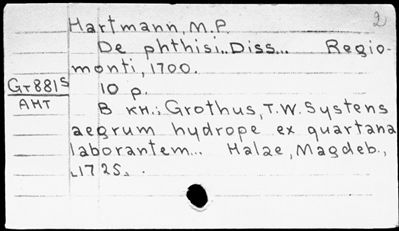 2
Hartmann, M.P.
De phthisi.. Diss... Regio-
monti, 1700.
Gr881s
10 p.
АНТ
В кн.: Grothus, T.W. Systens
aegrum hydrope ex quartana
laborantem... Halae, Magdeb.,
1725. .